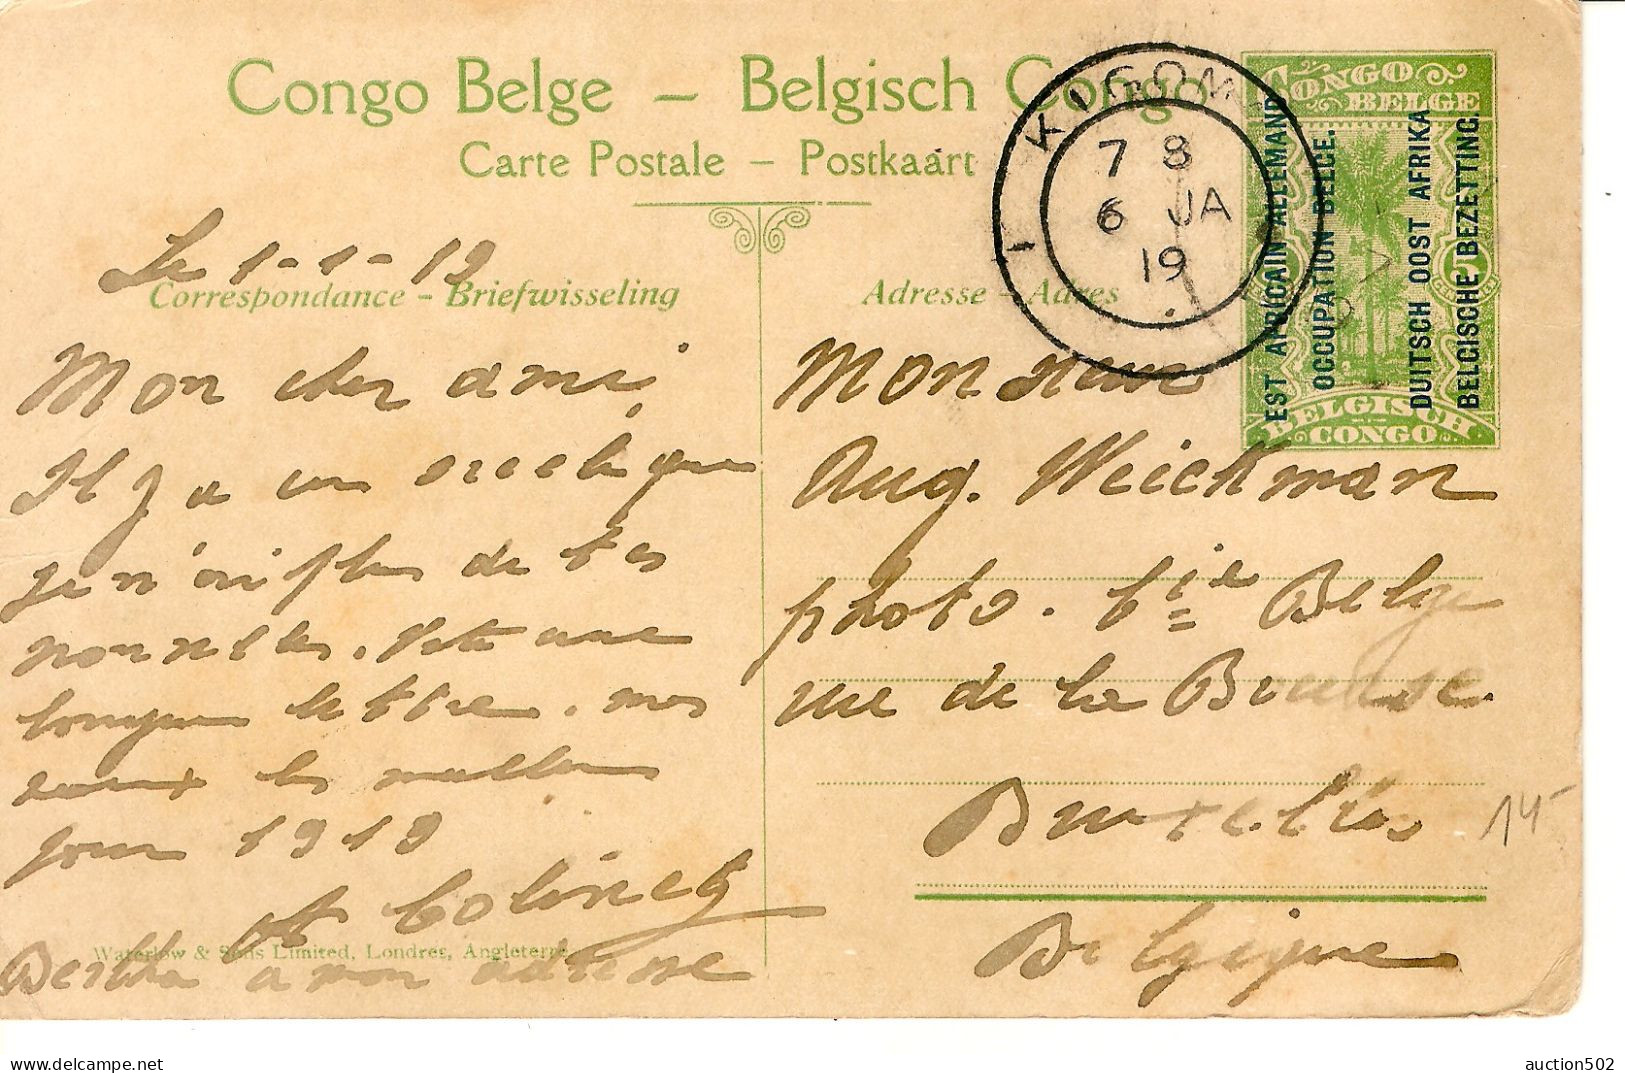 Congo Belge – Belgisch Congo
Carte Postale – Postkaart
KIGOMA
7 8
6 JA
19
CONGO
BELGE
EST AFRICAIN ALLEMAND
OCCUPATION BELGE.
DUITSCH OOST AFRIKA
BELGISCHE BEZETTING.
5
BELGISCH
CONGO
Le 1-1-19
Correspondance – Briefwisseling
Adresse – Adres
Mon cher ami,
Il y a un siecle que
je n'ai plus de tes
nouvelles. Vite une
longue lettre. mes
vœux les meilleurs
pour 1919
Monsieur
Aug. Weickman
photo. Cie Belge
rue de la Bourse.
Bruxelles
Belgique
14-
Waterlow & Sons Limited, Londres, Angleterre
a mon adresse
auction502